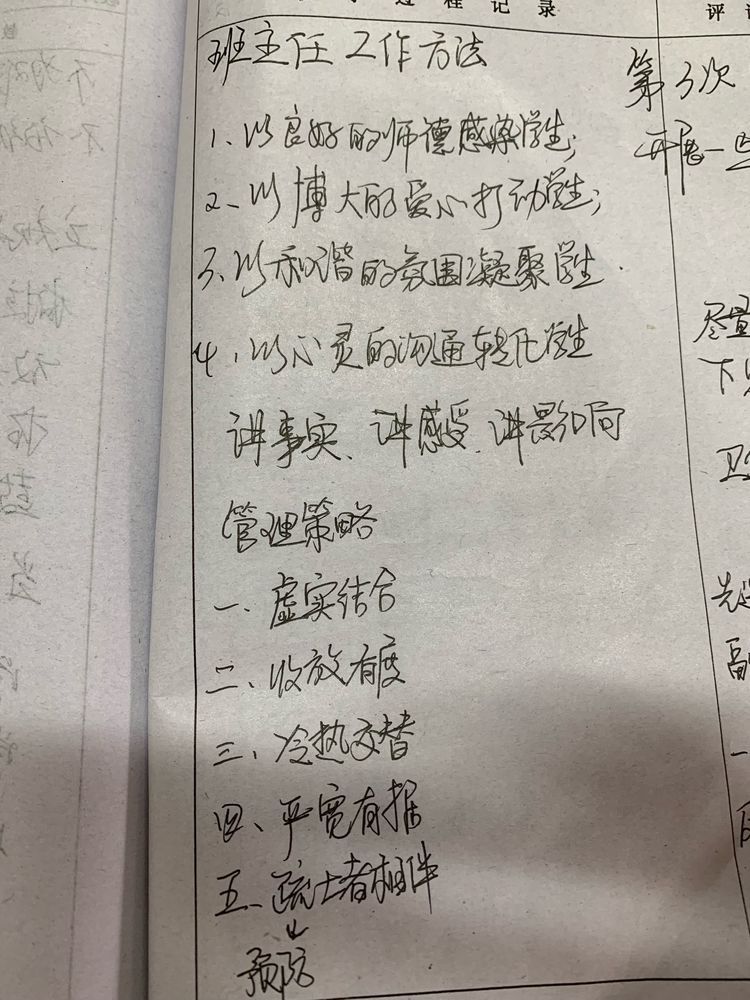 过程记录
评
班主任工作方法
1、以良好的师德感染学生;
2、以博大的爱心打动学生;
3、以和谐的氛围凝聚学生.
4、以心灵的沟通转化学生
讲事实、讲感受、讲影响
管理策略
一、虚实结合
二、收放有度
三、冷热交替
四、严宽有据
五、疏堵相伴
↓
预防
第3次
开展一
尽量
下
卫
先
副
一